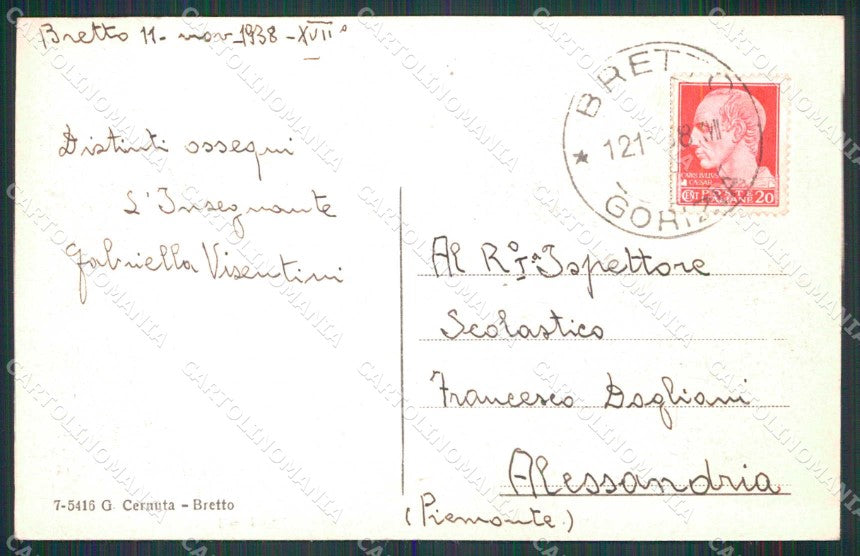 Bretto 11- nov- 1938 - XVII°
Distinti ossequi
L'Insegnante
Gabriella Visentini
BRETTO
GORIZIA
CENT POSTE ITALIANE 20
Al R° Ispettore
Scolastico
Francesco Dogliani
Alessandria
(Piemonte)
7-5416 G. Cernuta - Bretto
CARTOLINOMANIA